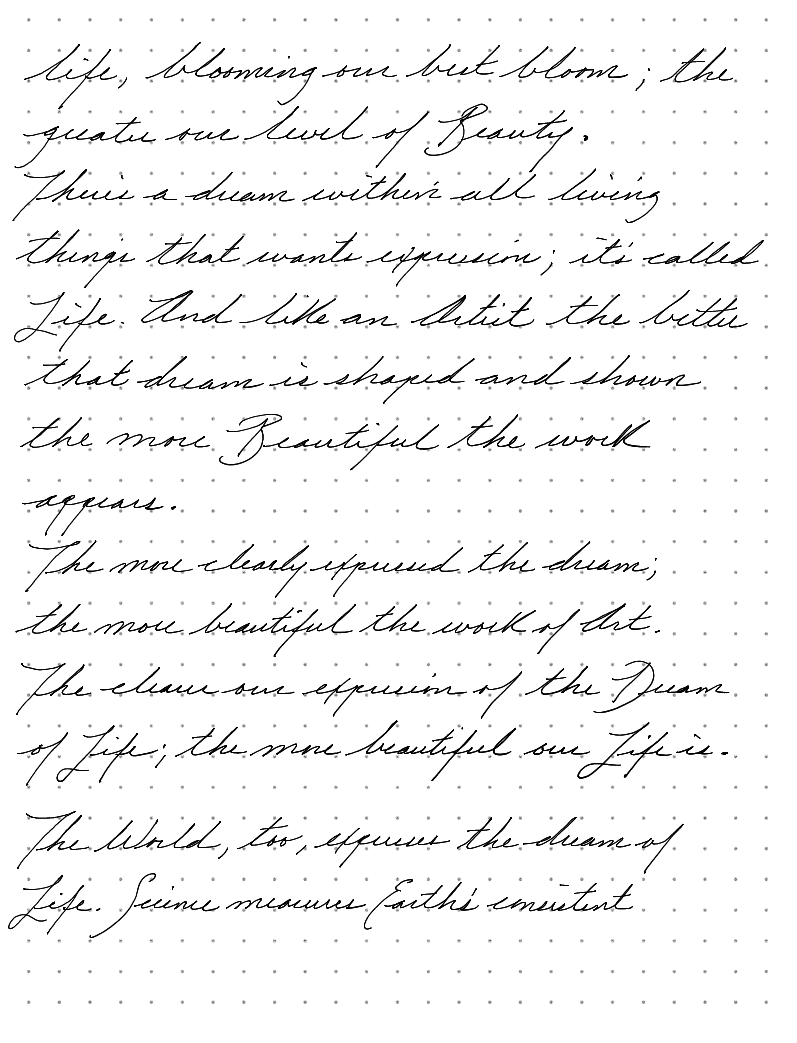 life, blooming our best bloom; the
greater our level of Beauty.
There's a dream within all living
things that wants expression; it's called
Life. And like an Artist the better
that dream is shaped and shown
the more Beautiful the work
appears.
The more clearly expressed the dream;
the more beautiful the work of Art.
The clearer our expression of the Dream
of Life; the more beautiful our Life is.
The World, too, expresses the dream of
Life. Science measures Earth's consistent